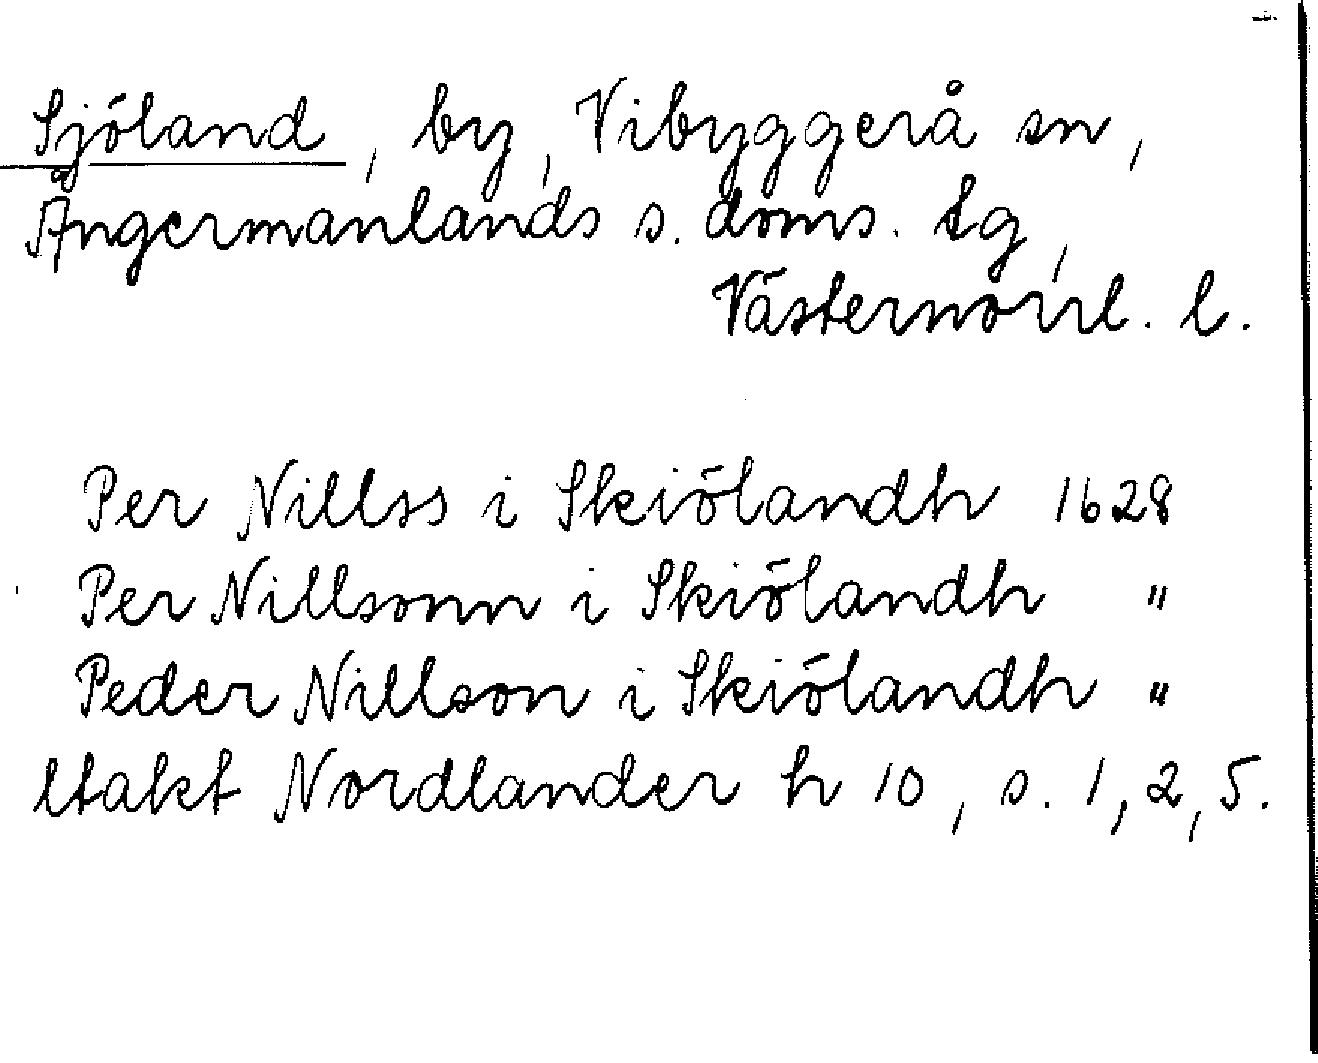 Sjöland, by, Vibyggerå sn,
Ångermanlands s. doms. tg,
Västernorrl. l.
Per Nillss i Skiölandh 1628
Per Nillsonn i Skiölandh "
Peder Nillson i Skiölandh "
Utakt Nordlander h 10, s. 1, 2, 5.